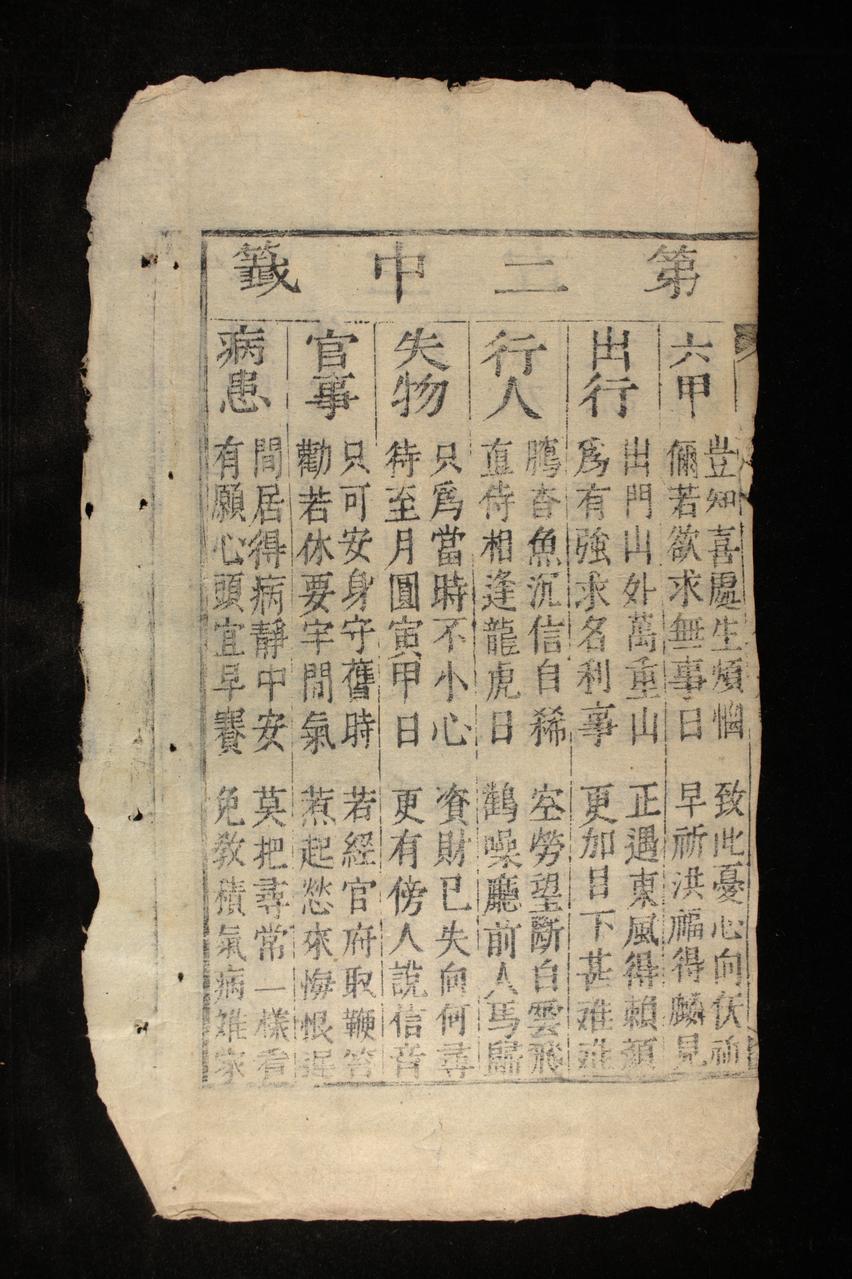 第二中籤
六甲
豈知喜處生煩惱 致此憂心向伏
儞若欲求無事日 早祈洪福得麟兒
出行
出門山外萬重山 正遇東風得賴顏
爲有強求名利事 更加目下甚难难
行人
鴈杳魚沉信自稀 空勞望斷白雲飛
直待相逢龍虎日 鵲噪廳前人馬歸
失物
只爲當時不小心 資財已失向何尋
待至月圓寅甲日 更有傍人說信音
官事
只可安身守舊時 若經官府取鞭笞
勸若休要宇閒氣 惹起愁來悔恨遲
病患
閒居得病靜中安 莫把尋常一樣看
有願心頭宜早賽 免教積氣病难